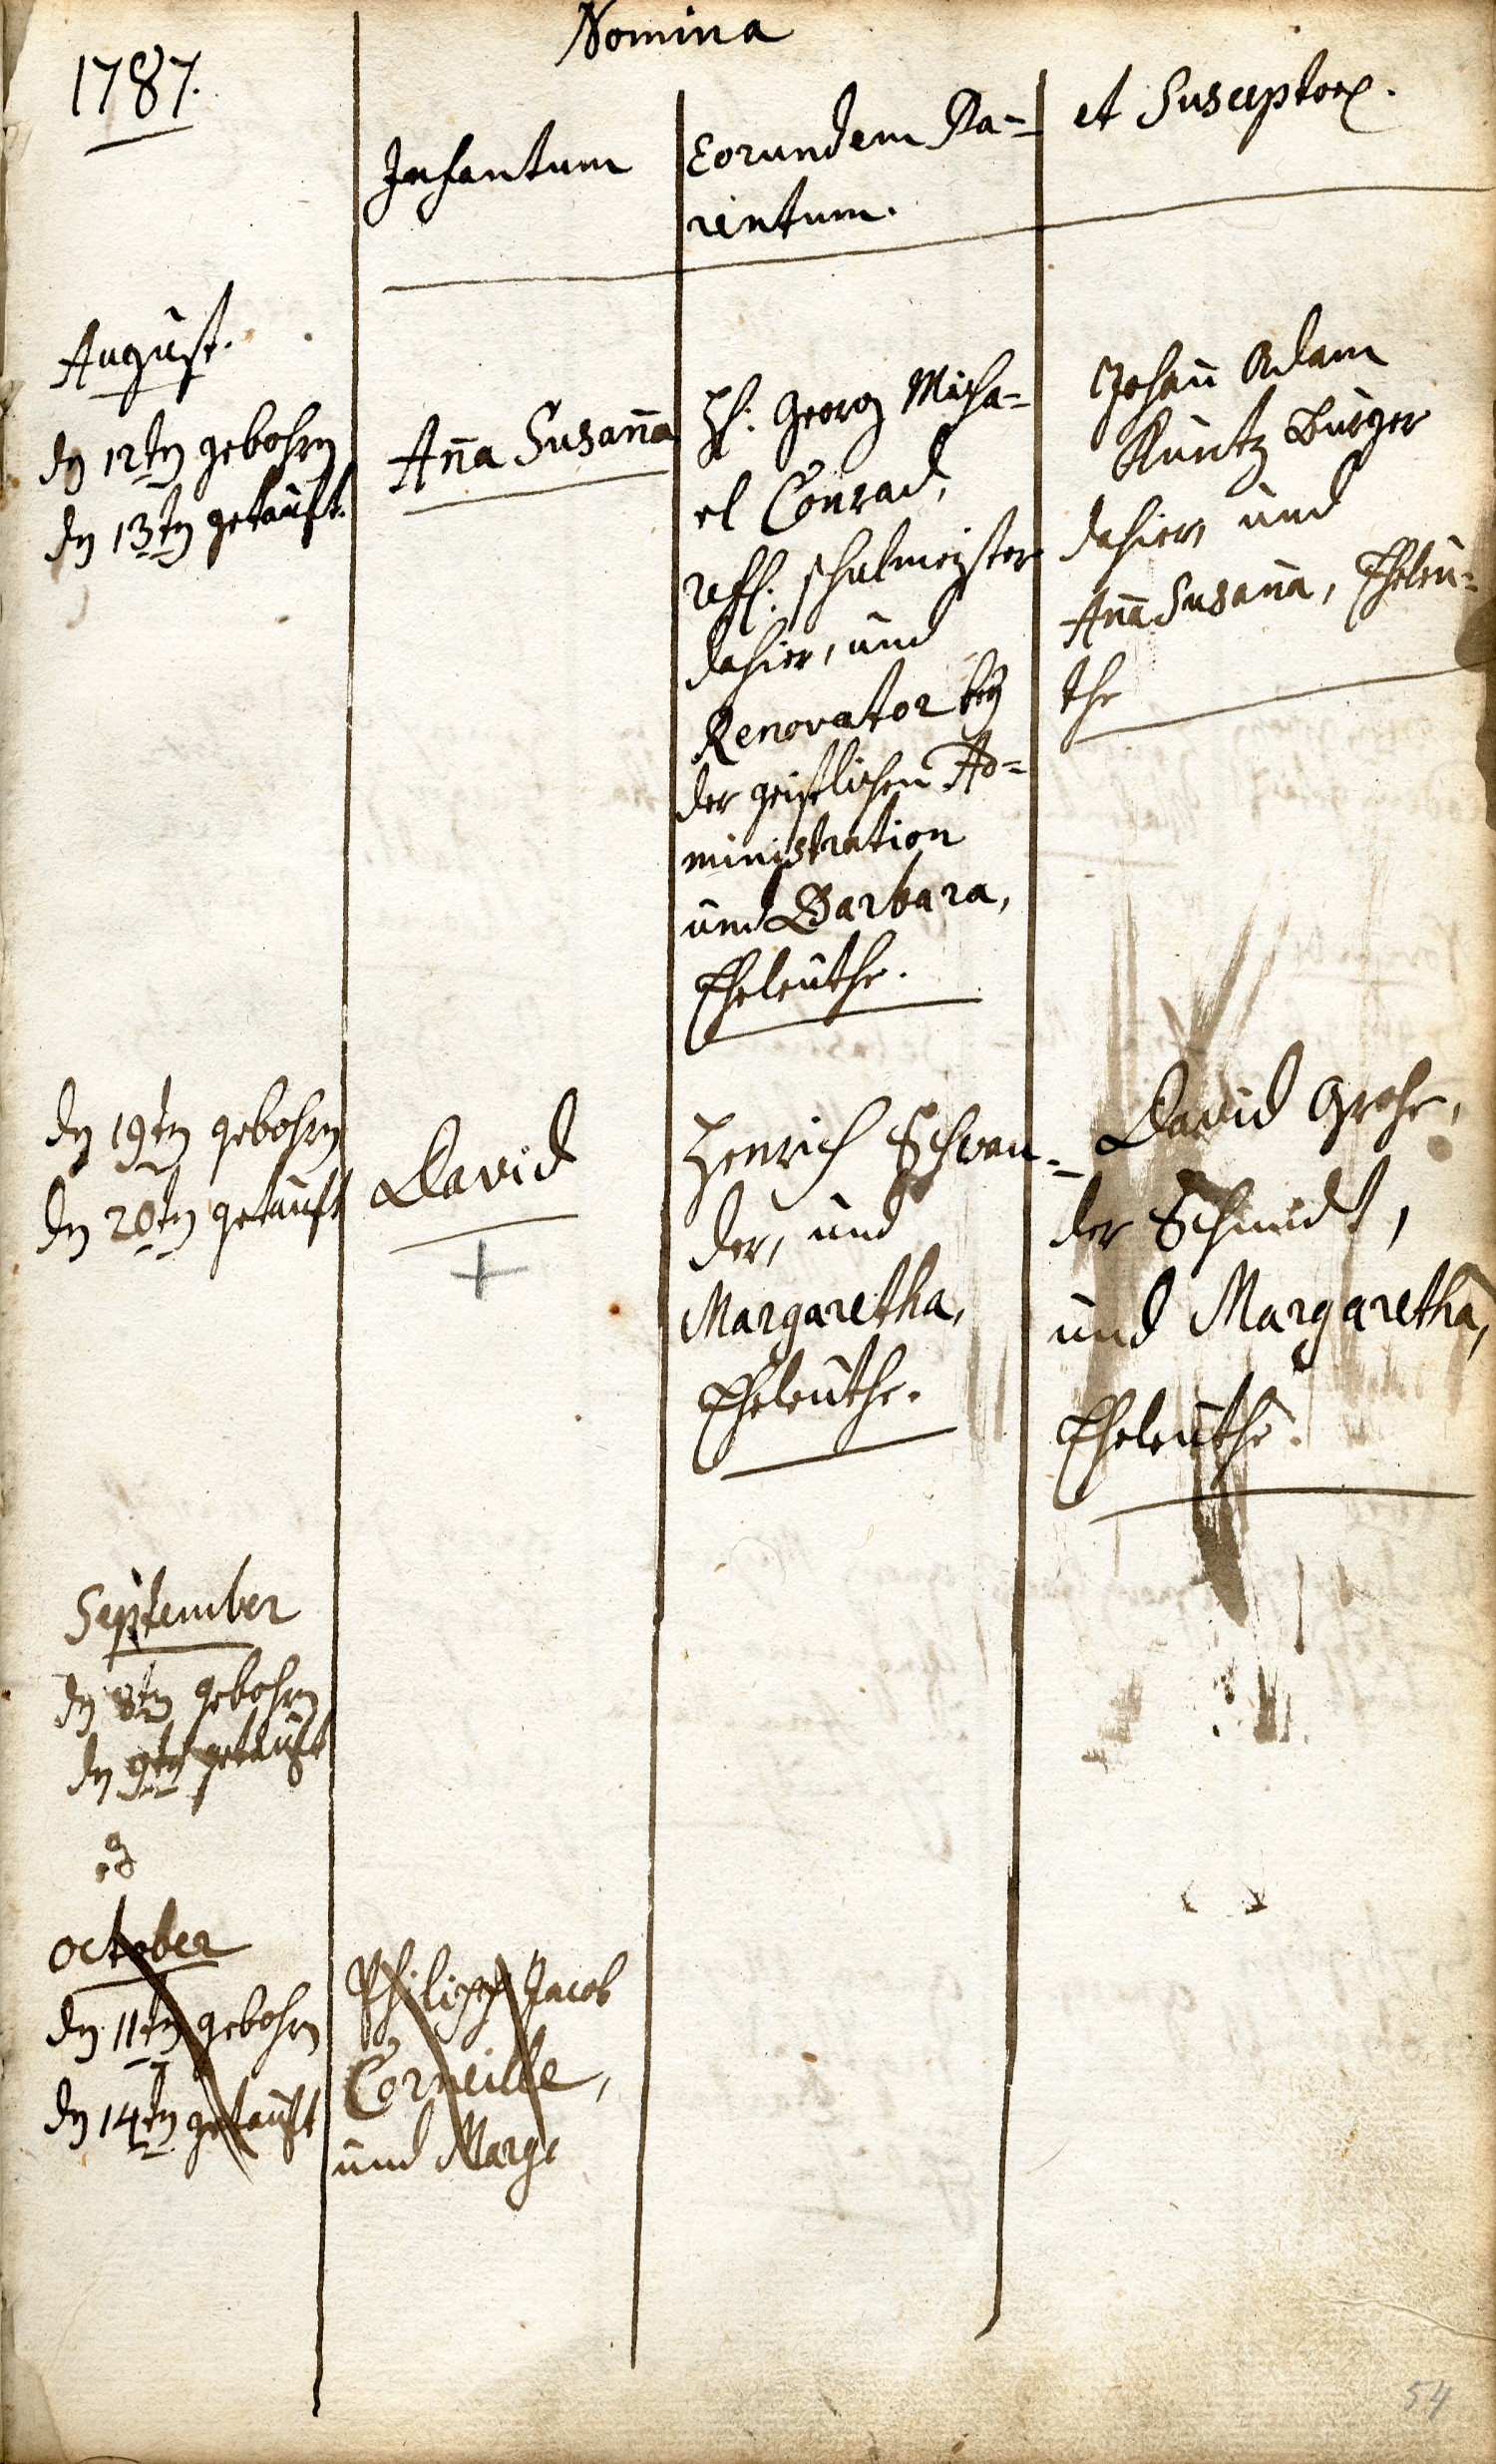 1787.
Nomina
Infantum
Eorundem Pa=
rentum.
et Susceptor.
August.
dn 12tn gebohrn
dn 13tn getauft.
Ana Susana
H: Georg Micha=
el Conrad,
reff: schulmeyster
dahier, und
Renovator bey
der geistlichen Ad=
ministration
und Barbara,
Eheleuthe.
Johan Adam
Kuntz Burger
dahier und
Ana Susana, Eheleu=
the
dn 19tn gebohrn
dn 20tn getauft
David
+
Henrich Schwan=
der, und
Margaretha,
Eheleuthe.
David Grohe,
der Schmidt,
und Margaretha,
Eheleuthe.
September
dn 8tn gebohrn
dn 9tn getauft
october
dn 11tn gebohrn
dn 14tn getauft
Philipp Jacob
Corneille,
und Marg
54